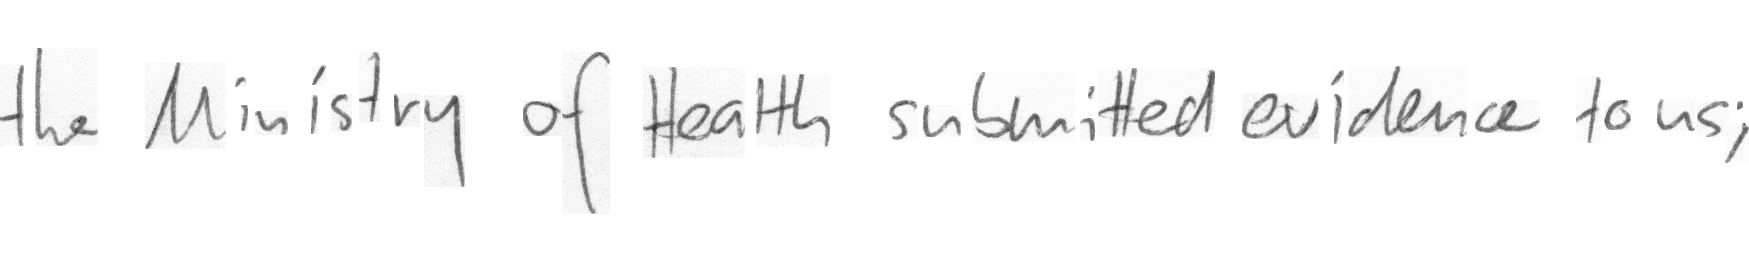 the Ministry of Health submitted evidence to us;